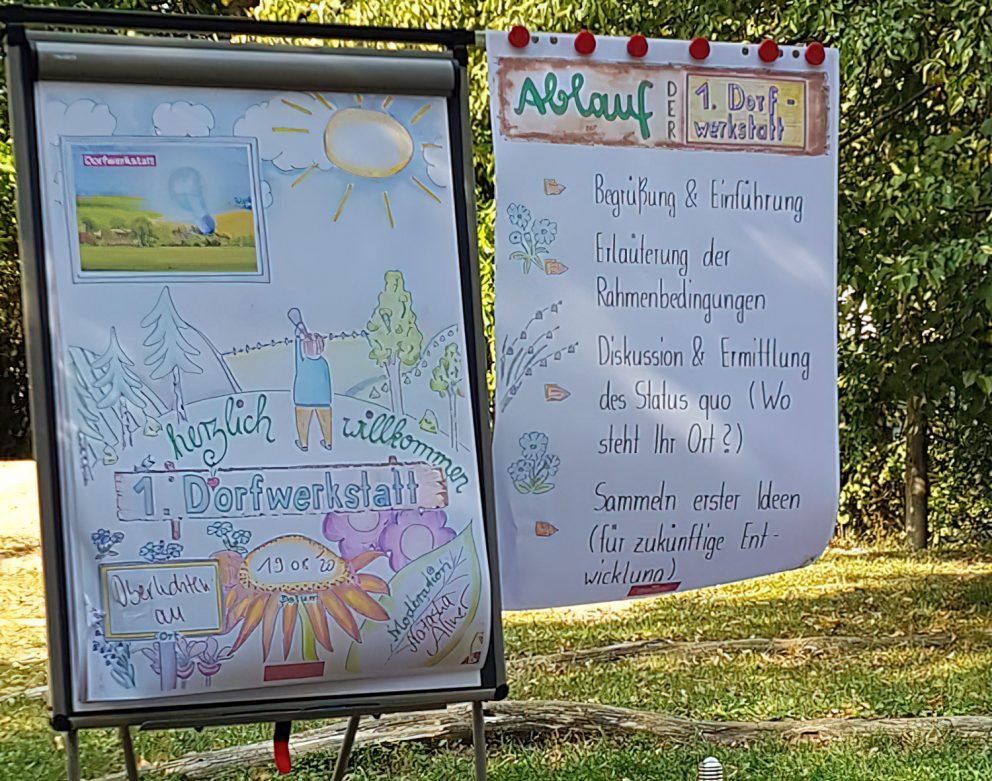 Dorfwerkstatt
herzlich willkommen
1. Dorfwerkstatt
19 08 20
Datum
Ort
Moderation
Natascha
Ablauf
DER
1. Dorf-
werkstatt
Begrüßung & Einführung
Erläuterung der
Rahmenbedingungen
Diskussion & Ermittlung
des Status quo (Wo
steht Ihr Ort?)
Sammeln erster Ideen
(für zukünftige Ent-
wicklung)